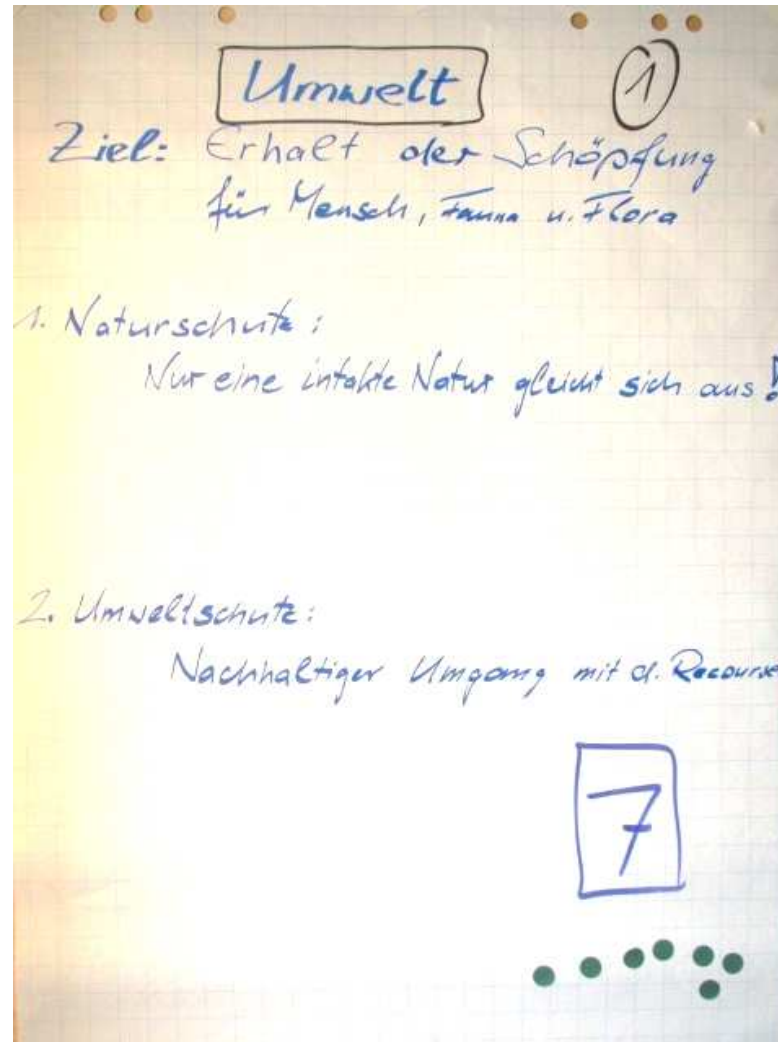 Umwelt
1
Ziel: Erhalt der Schöpfung
für Mensch, Fauna u. Flora
1. Naturschutz:
Nur eine intakte Natur gleicht sich aus!
2. Umweltschutz:
Nachhaltiger Umgang mit d. Recourse
7